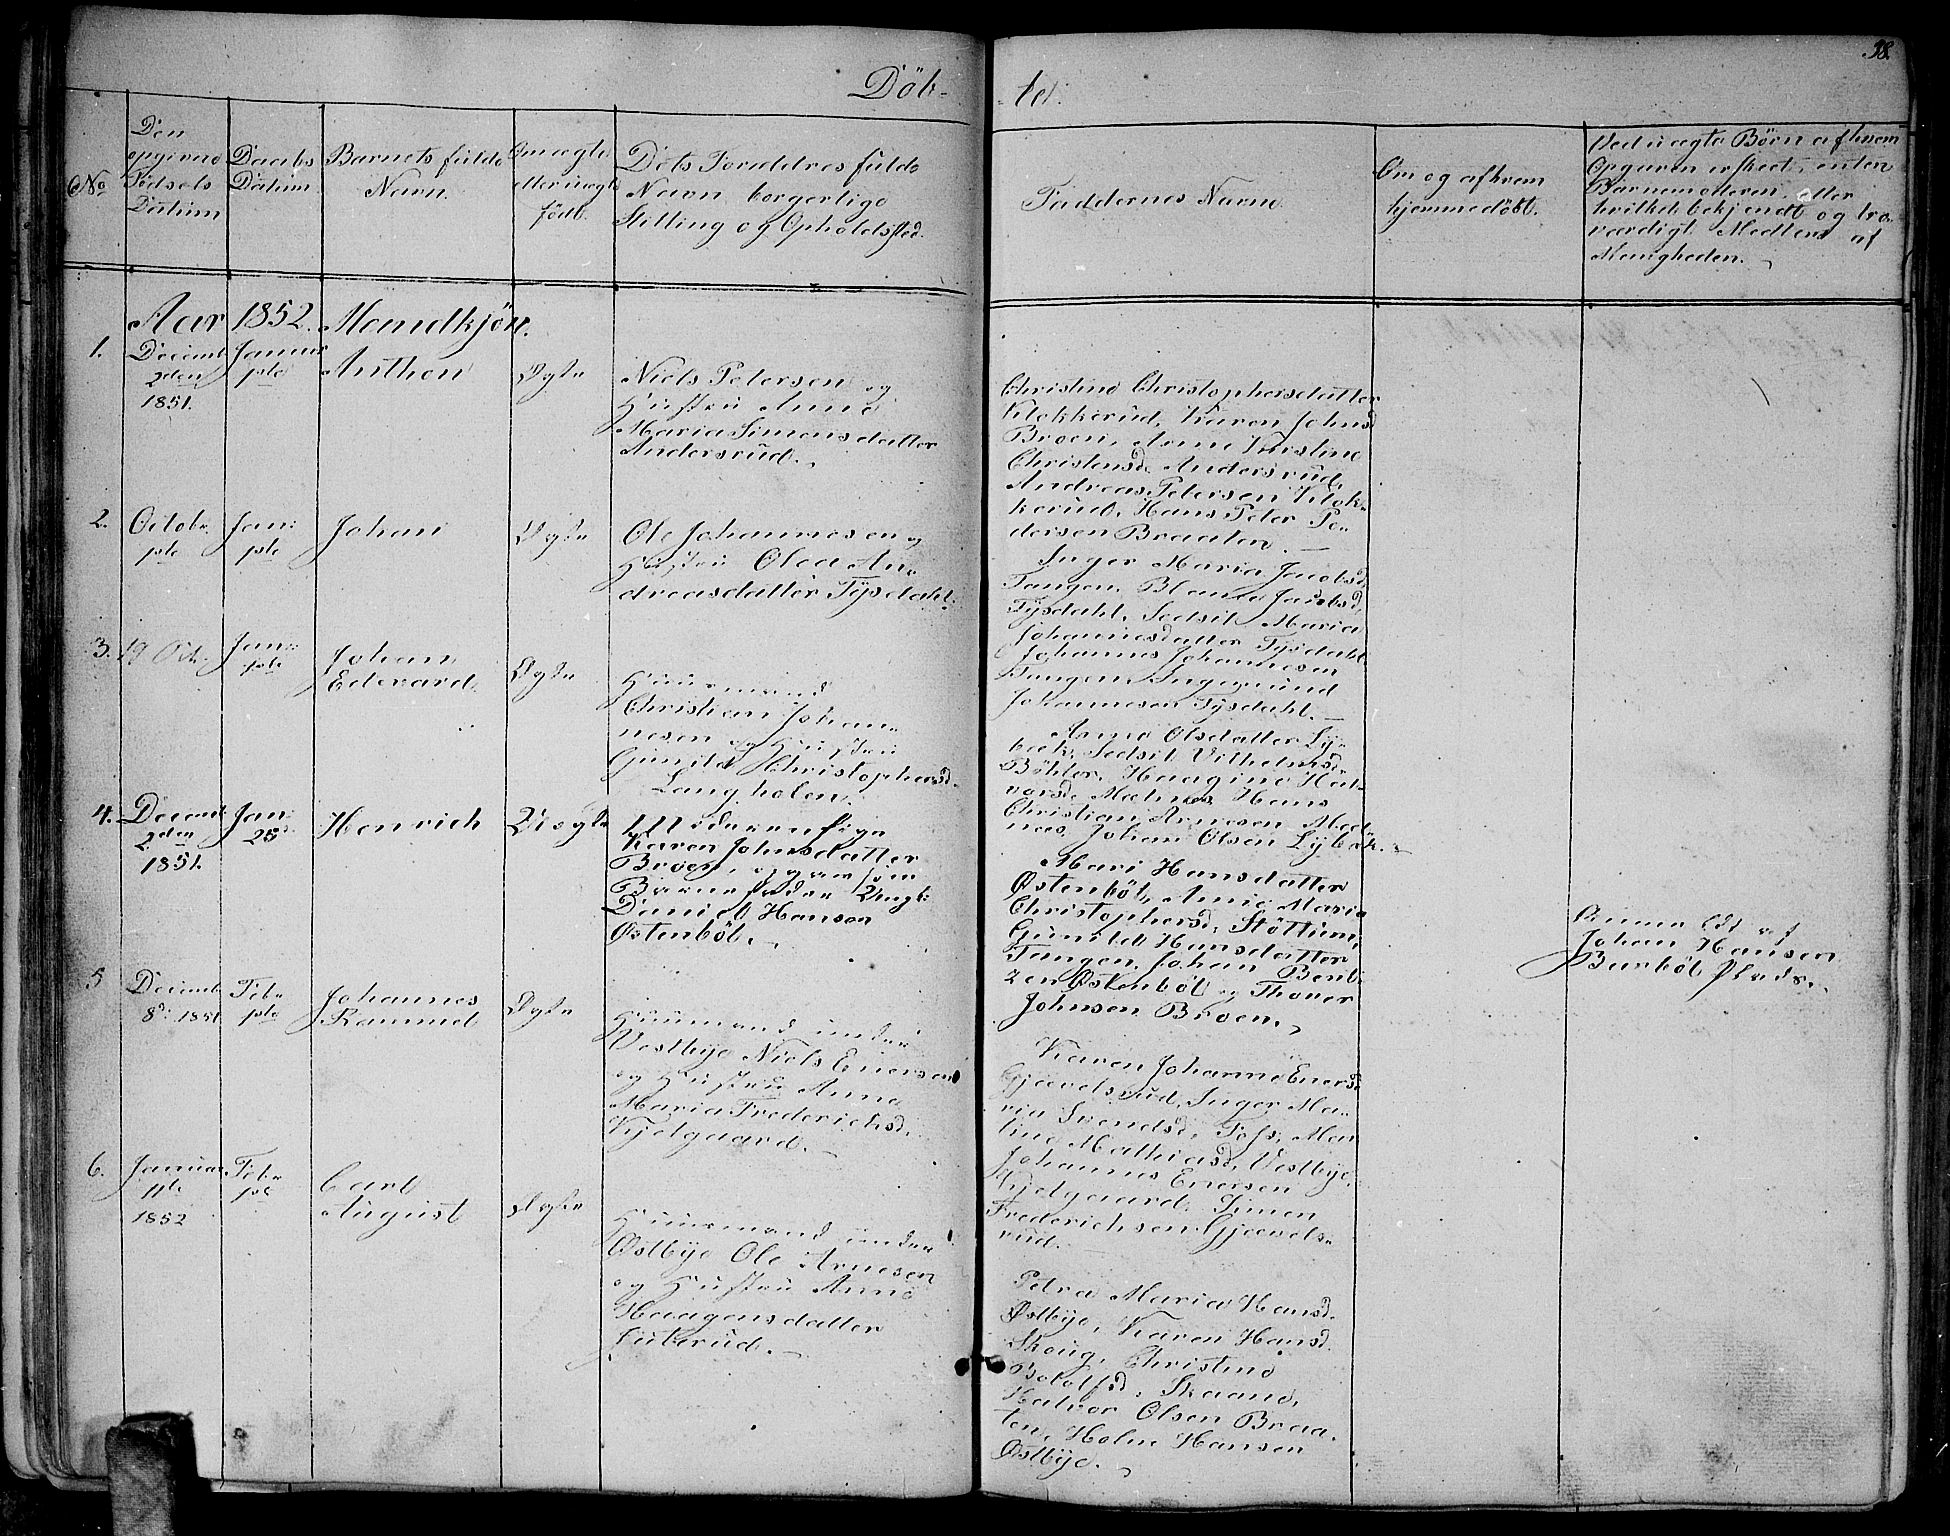 38.
Döb-
-te:
No
Den
opgivne
Födsels
Datum
Daabs
Datum
Barnets fulde
Navn.
Om ægte
eller uægte
födt.
Dets Forældres fulde
Navn borgerlige
Stilling og Opholdsted.
Faddernes Navne
Om og af hvem
hjemmedöbt.
Ved uægte Börn af hvem
Opgaven er skeet, enten
Barnemoderen eller
hvilket bekjendt og tro
værdigt Medlem af
Menigheden.
Aar 1852. Mandkjön.
1.
Decemb
2den
1851.
Januar
1ste
Anthon
Ægte
Niels Petersen og
Hustru Anne
Maria Simensdatter
Andersrud.
Christine Christophersdatter
Klokkerud, Karen Johnsd
Broen, Anne Kirstine
Christensd. Andersrud,
Andreas Petersen Klok-
kerud, Hans Peter Pe-
dersen Braaten.
2.
Octob.
1ste
Jan:
1ste
Johan
Ægte
Ole Johannesen og
Hustru Olea An-
dreasdatter Tysdahl.
Inger Maria Jacobsd
Tangen, Jacobsd,
Tysdahl, Sedsil Maria
Johannesdatter Tysdahl
Johannes Johannesen
Tangen, Ingemund
Johannesen Tysdahl.
3.
19 Oct.
Jan:
1ste
Johan
Edevard.
Ægte
Huusmand
Christian Johan-
nesen og Hustru
Gunild Christophersd.
Langholen.
Anne Olsdatter Ly-
bæk, Sedsil Vilhelmsd
Böhler, Haagine Hal-
vorsd. Mælnes, Hans
Christian Arnesen Mæl-
nes, Johan Olsen Lybæk.
4.
Decemb
2den
1851.
Jan:
25
Henrich
Uægte
Karen Johnsdatter
Broen, og som
Barnefader Ungk:
Daniel Hansen
Østenböl.
Mari Hansdatter
Østenböl, Anne Maria
Christophersd, Stöttum,
Gunild Hansdatter
Tangen, Johan Bent-
zen Østenböl og Thorer
Johnsen Broen.
Johan Hansen
Plads.
5
Decemb
8d. 1851
Feb.
1ste
Johannes
Ægte
Huusmand under
Vestbye Niels Enersen
og Hustru Anne
Maria Frederichsd.
Kjelgaard.
Karen Johanne Enersd
Gjævelsrud, Inger Ma-
ria Svendsd, Tofs, Ma-
line Mathiasd, Vestbye,
Johannes Enersen
Kjelgaard, Simen
Frederichsen Gjævels-
rud.
6.
Januar
11te
1852
Feb.
1ste
Carl
August
Ægte
Huusmand under
Østbye Ole Arnesen
og Hustru Anne
Haagensdatter
Luterud.
Petra Maria Hansd.
Østbye, Karen Hansd.
Skoug, Christine
Bototfsd, Skaand,
Halvor Olsen Braa-
ten, Holm Hansen
Østbye.